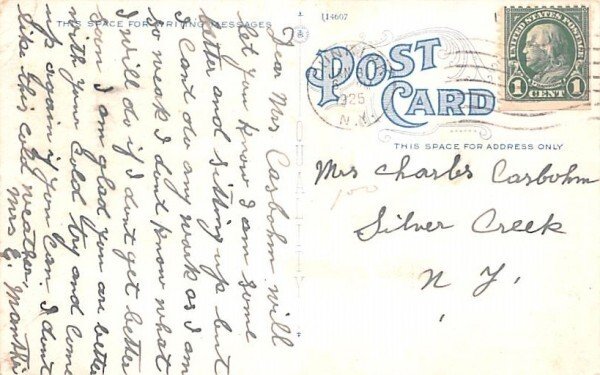 THIS SPACE FOR WRITING MESSAGES
114607
POST
CARD
THIS SPACE FOR ADDRESS ONLY
UNITED STATES POSTAGE
1 CENT 1
1925
N.Y.
Dear Mrs Casbohm will
let you know I am some
better and sitting up but
I Cant do any work as I am
so weak I dont know what
I will do if I dont get better
soon. I am glad you are better
with your Cold try and come
up again if you Can. I dont
like this cold weather.
Mrs G. Manthi
Mrs Charles Casbohm
Silver Creek
N Y.
100